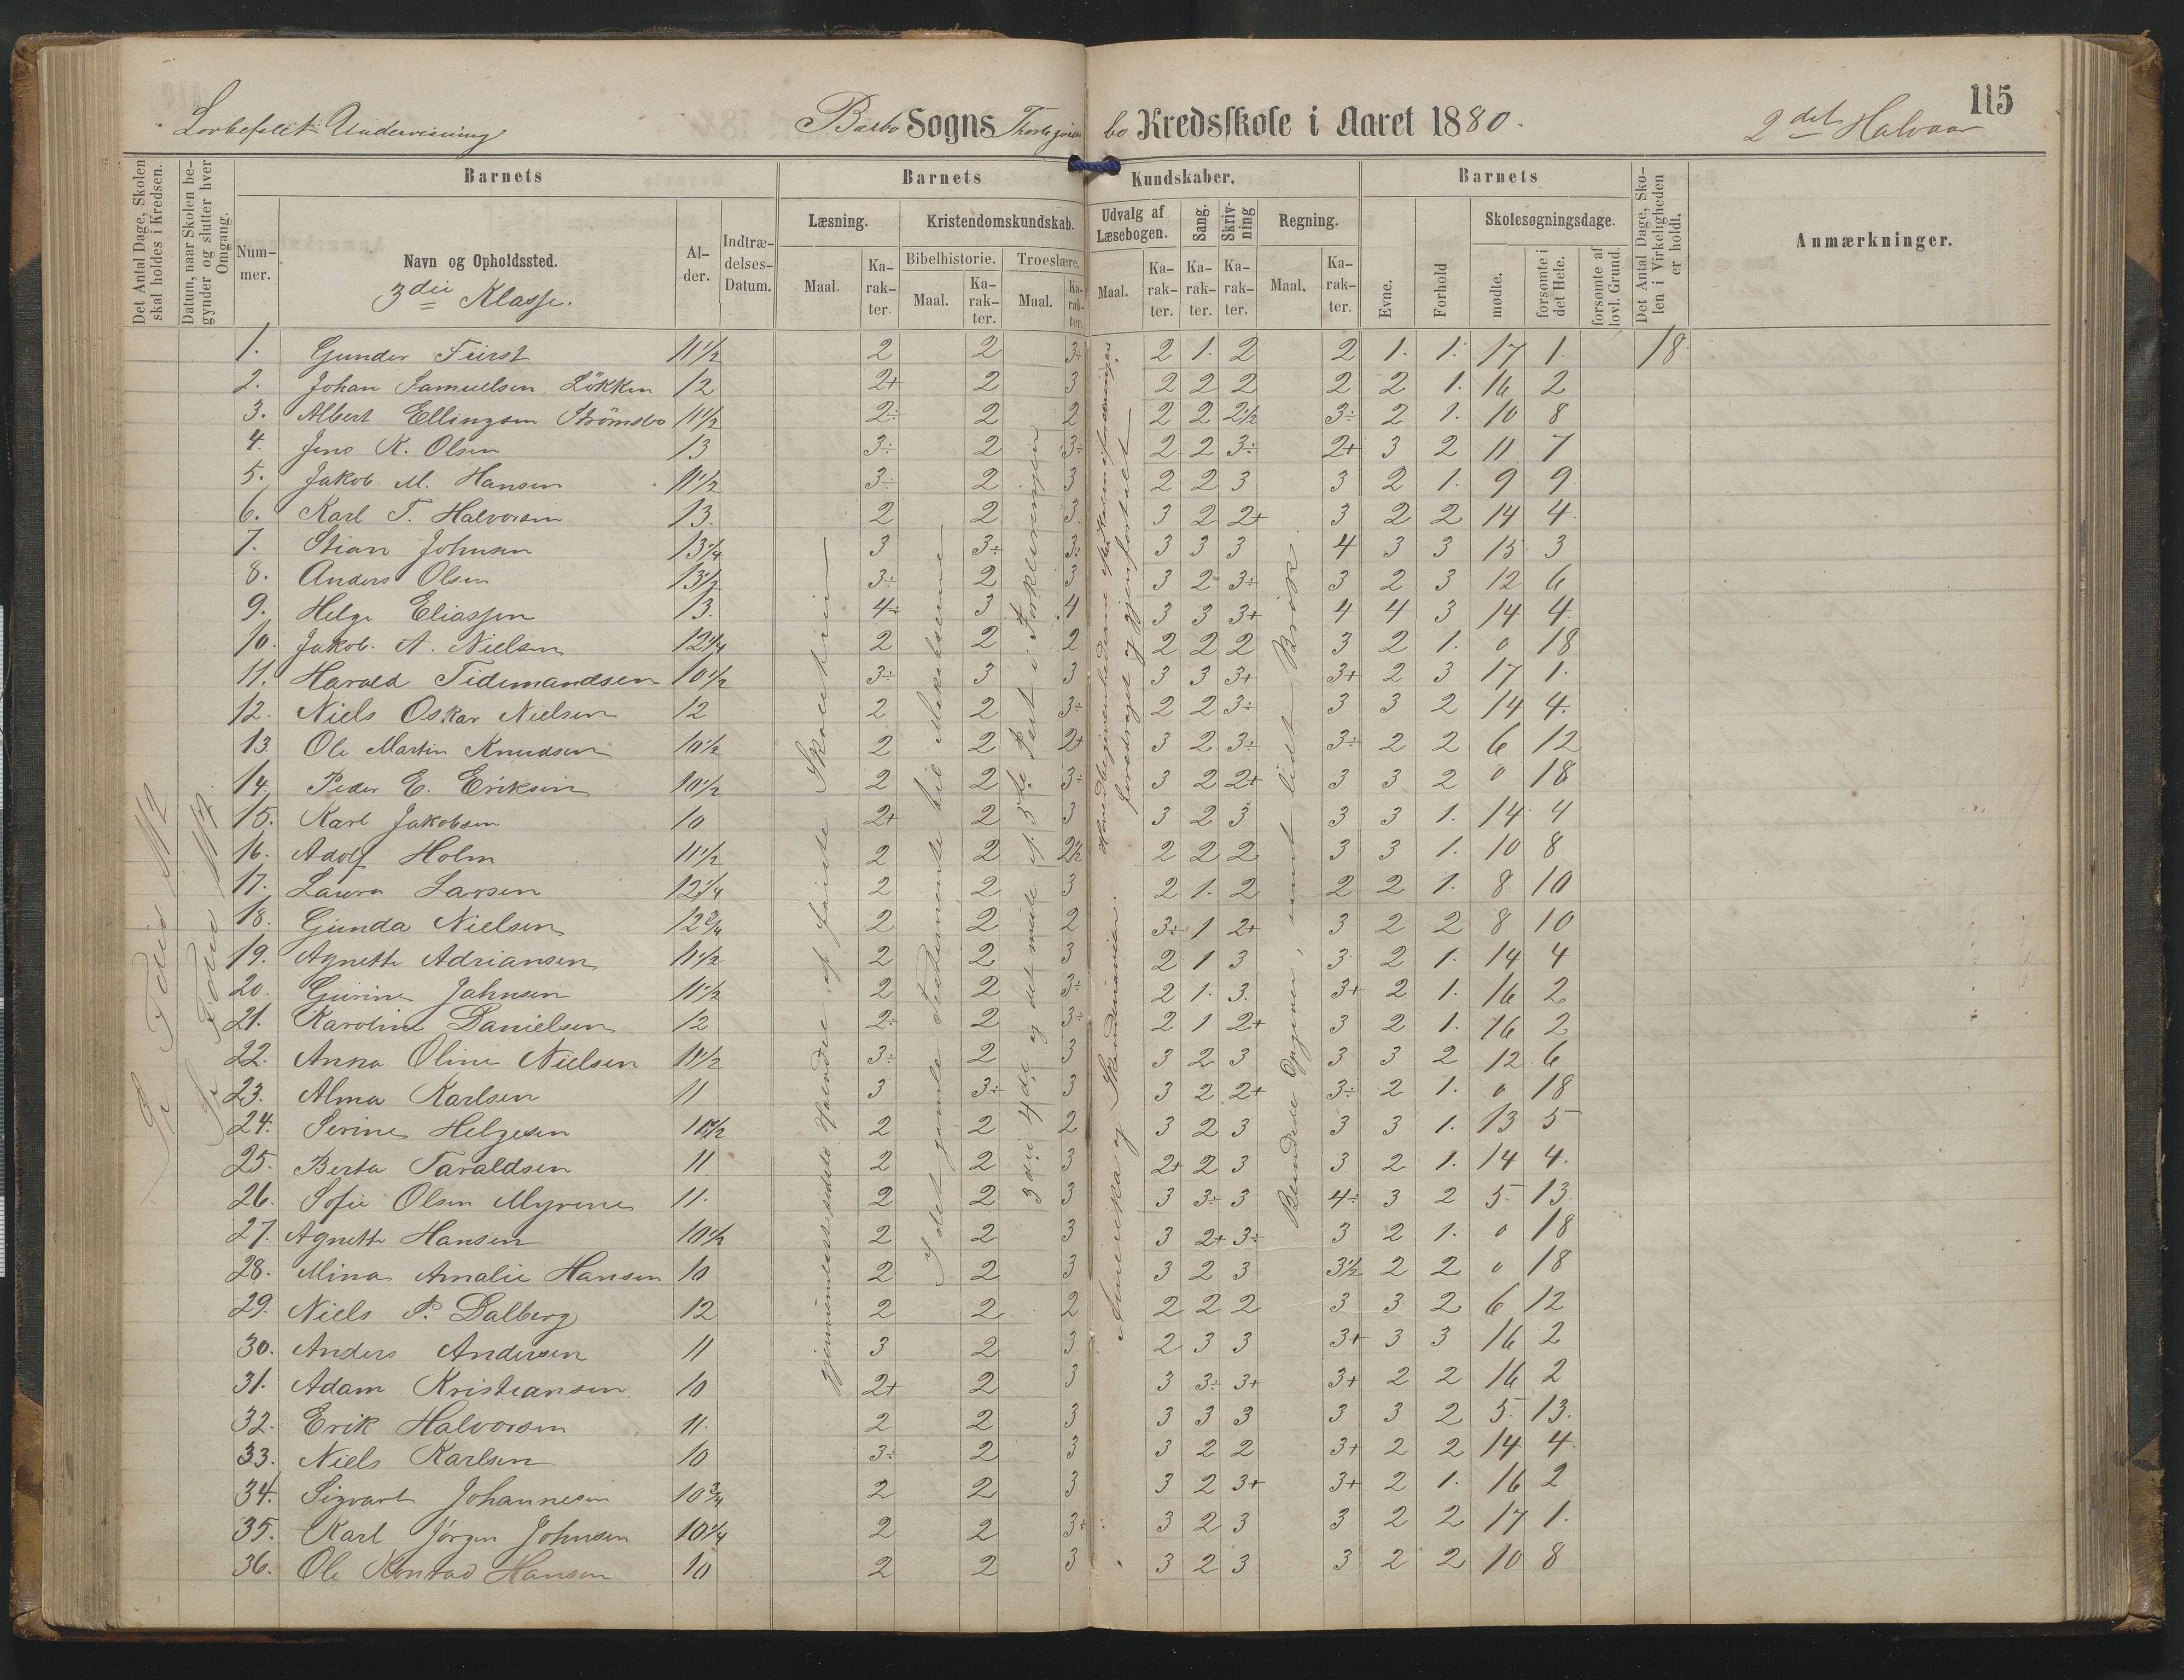 115
Lovbefalet Undervisning Barbo Sogns bo Kredsskole i Aaret 1880. 2det Halvaar
Det Antal Dage, Skolen skal holdes i Kredsen.
Datum, naar Skolen begynder og slutter hver Omgang.
Barnets
Num-mer.
Navn og Opholdssted.
3die Klasse.
Al-der.
Indtræ-delses-Datum.
Barnets Kundskaber.
Læsning.
Maal. Ka-rak-ter.
Kristendomskundskab.
Bibelhistorie. Troeslære.
Maal. Ka-rak-ter. Maal. Ka-rak-ter.
Udvalg af Læsebogen.
Maal. Ka-rak-ter.
Sang. Ka-rak-ter.
Skriv-ning Ka-rak-ter.
Regning.
Maal. Ka-rak-ter.
Barnets
Evne. Forhold
Skolesøgningsdage.
mødte. forsømte i det Hele. forsømte af lovl. Grund.
Det Antal Dage, Sko-len i Virkeligheden er holdt.
Anmærkninger.
1. Gunder Fürst 11 1/2 2 2 3÷ 2 1. 2 2 1. 1. 17 1. 18.
2. Johan Samuelsen Lökken 12 2+ 2 3 2 2 2 2 2 1. 16 2
3. Albert Ellingsen Strömsbo 11 1/2 2÷ 2 2 2 2 2 1/2 3÷ 2 1. 10 8
4. Jens K. Olsen 13 3÷ 2 3÷ 2 2 3÷ 2+ 3 2 11 7
5. Jakob M. Hansen 11 1/2 3÷ 2 3 2 2 3 3 2 1. 9 9
6. Karl T. Halvorsen 13. 2 2 3 3 2 2+ 3 2 2 14 4.
7. Stian Johnsen 13 1/4 3 3÷ 3÷ 3 3 3 4 3 3 15 3
8. Anders Olsen 13 1/2 3÷ 2 3 3 2 3÷ 3 2 3 12 6
9. Helge Eliassen 13. 4÷ 3 4 3 3 3+ 4 4 3 14 4
10. Jakob. A. Nielsen 12 1/4 2 2 2 2 2 2 3 2 1. 0 18
11. Harald Tidemandsen 10 1/2 3÷ 3 3 3 3 3+ 3+ 2 3 17 1.
12. Niels Oskar Nielsen 12 2 2 3÷ 2 2 3÷ 3 3 2 14 4.
13. Ole Martin Knudsen 10 1/2 2 2 2+ 3 2 3÷ 3÷ 2 2 6 12
14. Peder E. Eriksen 10 1/2 2 2 3÷ 3 2 2+ 3 3 2 0 18
15. Karl Jakobsen 10 2+ 2 3 3 2 3 3 3 1. 14 4
16. Adolf Holm 11 1/2 2 2 2 1/2 2 2 2 3 3 1. 10 8
17. Laura Larsen 12 1/4 2 2 3 2 1. 2 2 2 1. 8 10
18. Gunda Nielsen 12 2/4 2 2 2 3÷ 1 2+ 3 2 2 8 10
19. Agnette Adriansen 11 1/2 2 2 3 2 1 3 3 2 1. 14 4
20. Gurine Jahnsen 11 1/2 2 2 3÷ 2 1. 3. 3+ 2 1. 16 2
21. Karoline Danielsen 12 2÷ 2 3÷ 2 1 2+ 3 2 1. 16 2
22. Anna Oline Nielsen 11 1/2 3÷ 2 3 3 2 3 3 3 2 12 6
23. Alma Karlsen 11 3 3÷ 3 3 2 2+ 3÷ 2 1. 0 18
24. Serine Helgesen 10 1/2 2 2 2 3 2 3 3 3 1. 13 5
25. Berta Taraldsen 11 2 2 3 2+ 2 3 3 2 1. 14 4.
26. Sofie Olsen Myrene 11. 2 2 3 3 3÷ 3 4÷ 3 2 5 13
27. Agnette Hansen 10 1/2 2 2 3 3 2+ 3÷ 3 2 1. 0 18
28. Mina Amalie Hansen 10 2 2 3 3 2 3 3 1/2 2 2 0 18
29. Niels P. Dalberg 12 2 2 2 2 2 2 3 3 2 6 12
30. Anders Andersen 11 3 2 3 2 3 3 3+ 3 3 16 2
31. Adam Kristiansen 10 2+ 2 3 3 3÷ 3+ 3+ 2 2 16 2
32. Erik Halvorsen 11. 2 2 3 3 3 3 3 3 2 5 13.
33. Niels Karlsen 10 3÷ 2 3 3 2 2 3+ 2 2 14 4
34. Sigvart Johannesen 10 3/4 2 2 3 3 2 3+ 3+ 2 1. 16 2
35. Karl Jörgen Johnsen 10 1/4 2 2 3÷ 3 2 3 3 2 2 17 1.
36. Ole Konrad Hansen 10 2 2 3 3 2 3 3 2 2 10 8
I det gamle Testamente til Makabæerne
3die, 4de og det meste af 5te Part i Forklaringen
Amerika og Skandinavien.
foredraget og gjenfortalt
Benævnte Opgaver, samt lidt Brök.